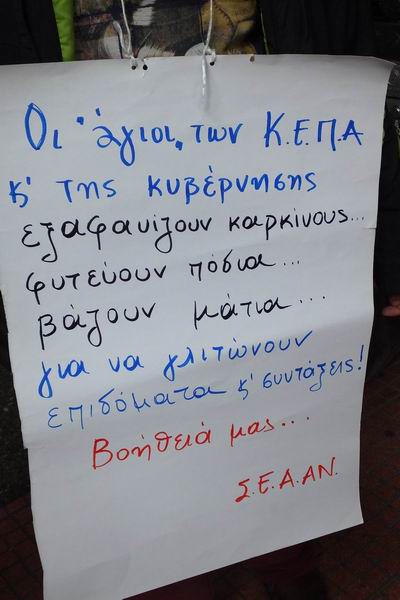 Οι "άγιοι" των Κ.Ε.Π.Α
κ' της κυβέρνησης
εξαφανίζουν καρκίνους...
φυτεύουν πόδια...
βάζουν μάτια...
για να γλιτώνουν
επιδόματα κ' συντάξεις!
Βοήθειά μας...
Σ.Ε.Α.ΑΝ.